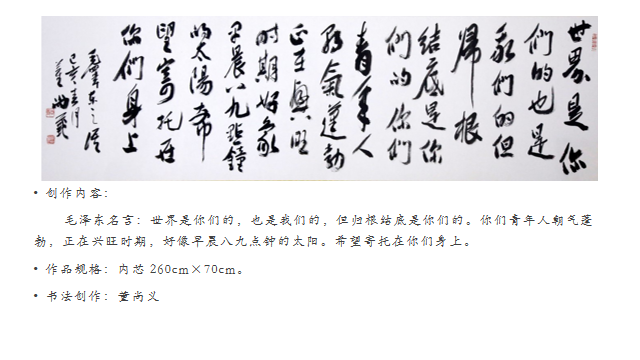 世界是你
们的也是
我们的但
歸根
结底是你
们的你们
青年人
朝氣蓬勃
正在興旺
时期好象
早晨八九點鐘
的太陽希
望寄托在
你們身上
毛澤东之語
己亥春月
董尚義
• 创作内容：
毛泽东名言：世界是你们的，也是我们的，但归根结底是你们的。你们青年人朝气蓬
勃，正在兴旺时期，好像早晨八九点钟的太阳。希望寄托在你们身上。
• 作品规格：内芯 260cm×70cm。
• 书法创作：董尚义